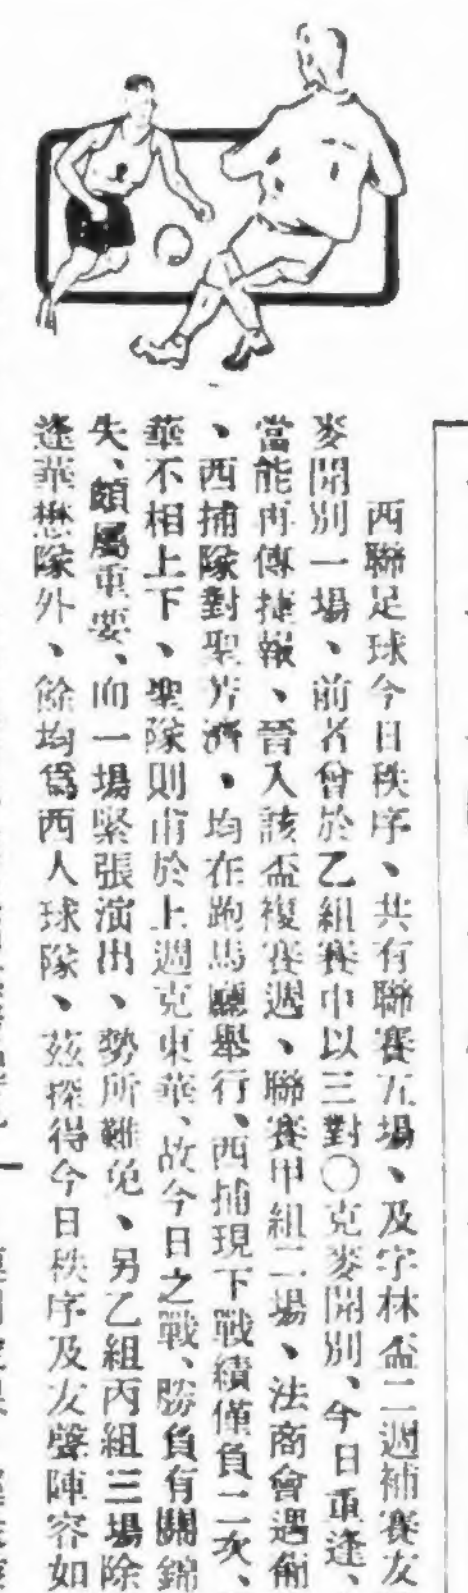 西聯足球今日秩序、共有聯賽五場、及字林盃二週補賽友
麥開別一場、前者會於乙組賽中以三對〇克麥開別、今日重逢、
當能再傳捷報、晉入該盃複賽週、聯賽甲組二場、法商會遇葡
、西捕隊對聖芳濟、均在跑馬廳舉行、西捕現下戰績僅負二次、
華不相上下、聖隊則甫於上週克東華、故今日之戰、勝負有關錦
失、頗屬重要、而一場緊張演出、勢所難免、另乙組丙組三場除
逢華懋隊外、餘均爲西人球隊、茲探得今日秩序及友聲陣容如